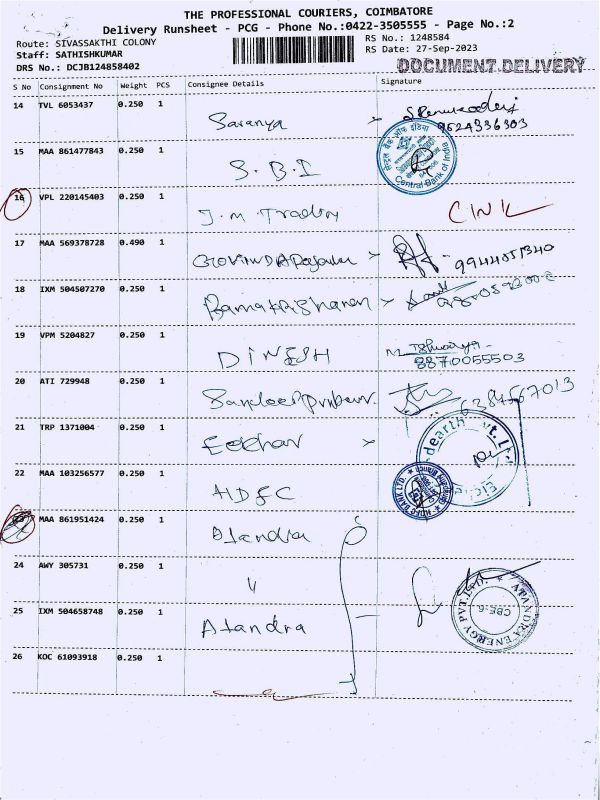 THE PROFESSIONAL COURIERS, COIMBATORE
Delivery Runsheet - PCG - Phone No.:0422-3505555 - Page No.:2
Route: SIVASSAKTHI COLONY
RS No.: 1248584
Staff: SATHISHKUMAR
RS Date: 27-Sep-2023
DRS No.: DCJB124858402
DOCUMENT DELIVERY
S No Consignment No Weight PCS Consignee Details Signature
14 TVL 6053437 0.250 1 Saranya
9524336303
15 MAA 861477843 0.250 1 S.B.I
सेन्ट्रल बैंक ऑफ इंडिया
Central Bank of India
16 VPL 220145403 0.250 1 J.M Trading
17 MAA 569378728 0.490 1 9944051340
18 IXM 504507270 0.250 1 Ramakrishanan
19 VPM 5204827 0.250 1 DINESH
8870055503
20 ATI 729948 0.250 1 6384567013
21 TRP 1371004 0.250 1
22 MAA 103256577 0.250 1 HDFC
HDFC BANK LTD.
23 MAA 861951424 0.250 1 Atandra
24 AWY 305731 0.250 1 "
25 IXM 504658748 0.250 1 Atandra
ATANDRA ENERGY PVT. LTD.
CBE-6.
26 KOC 61093918 0.250 1